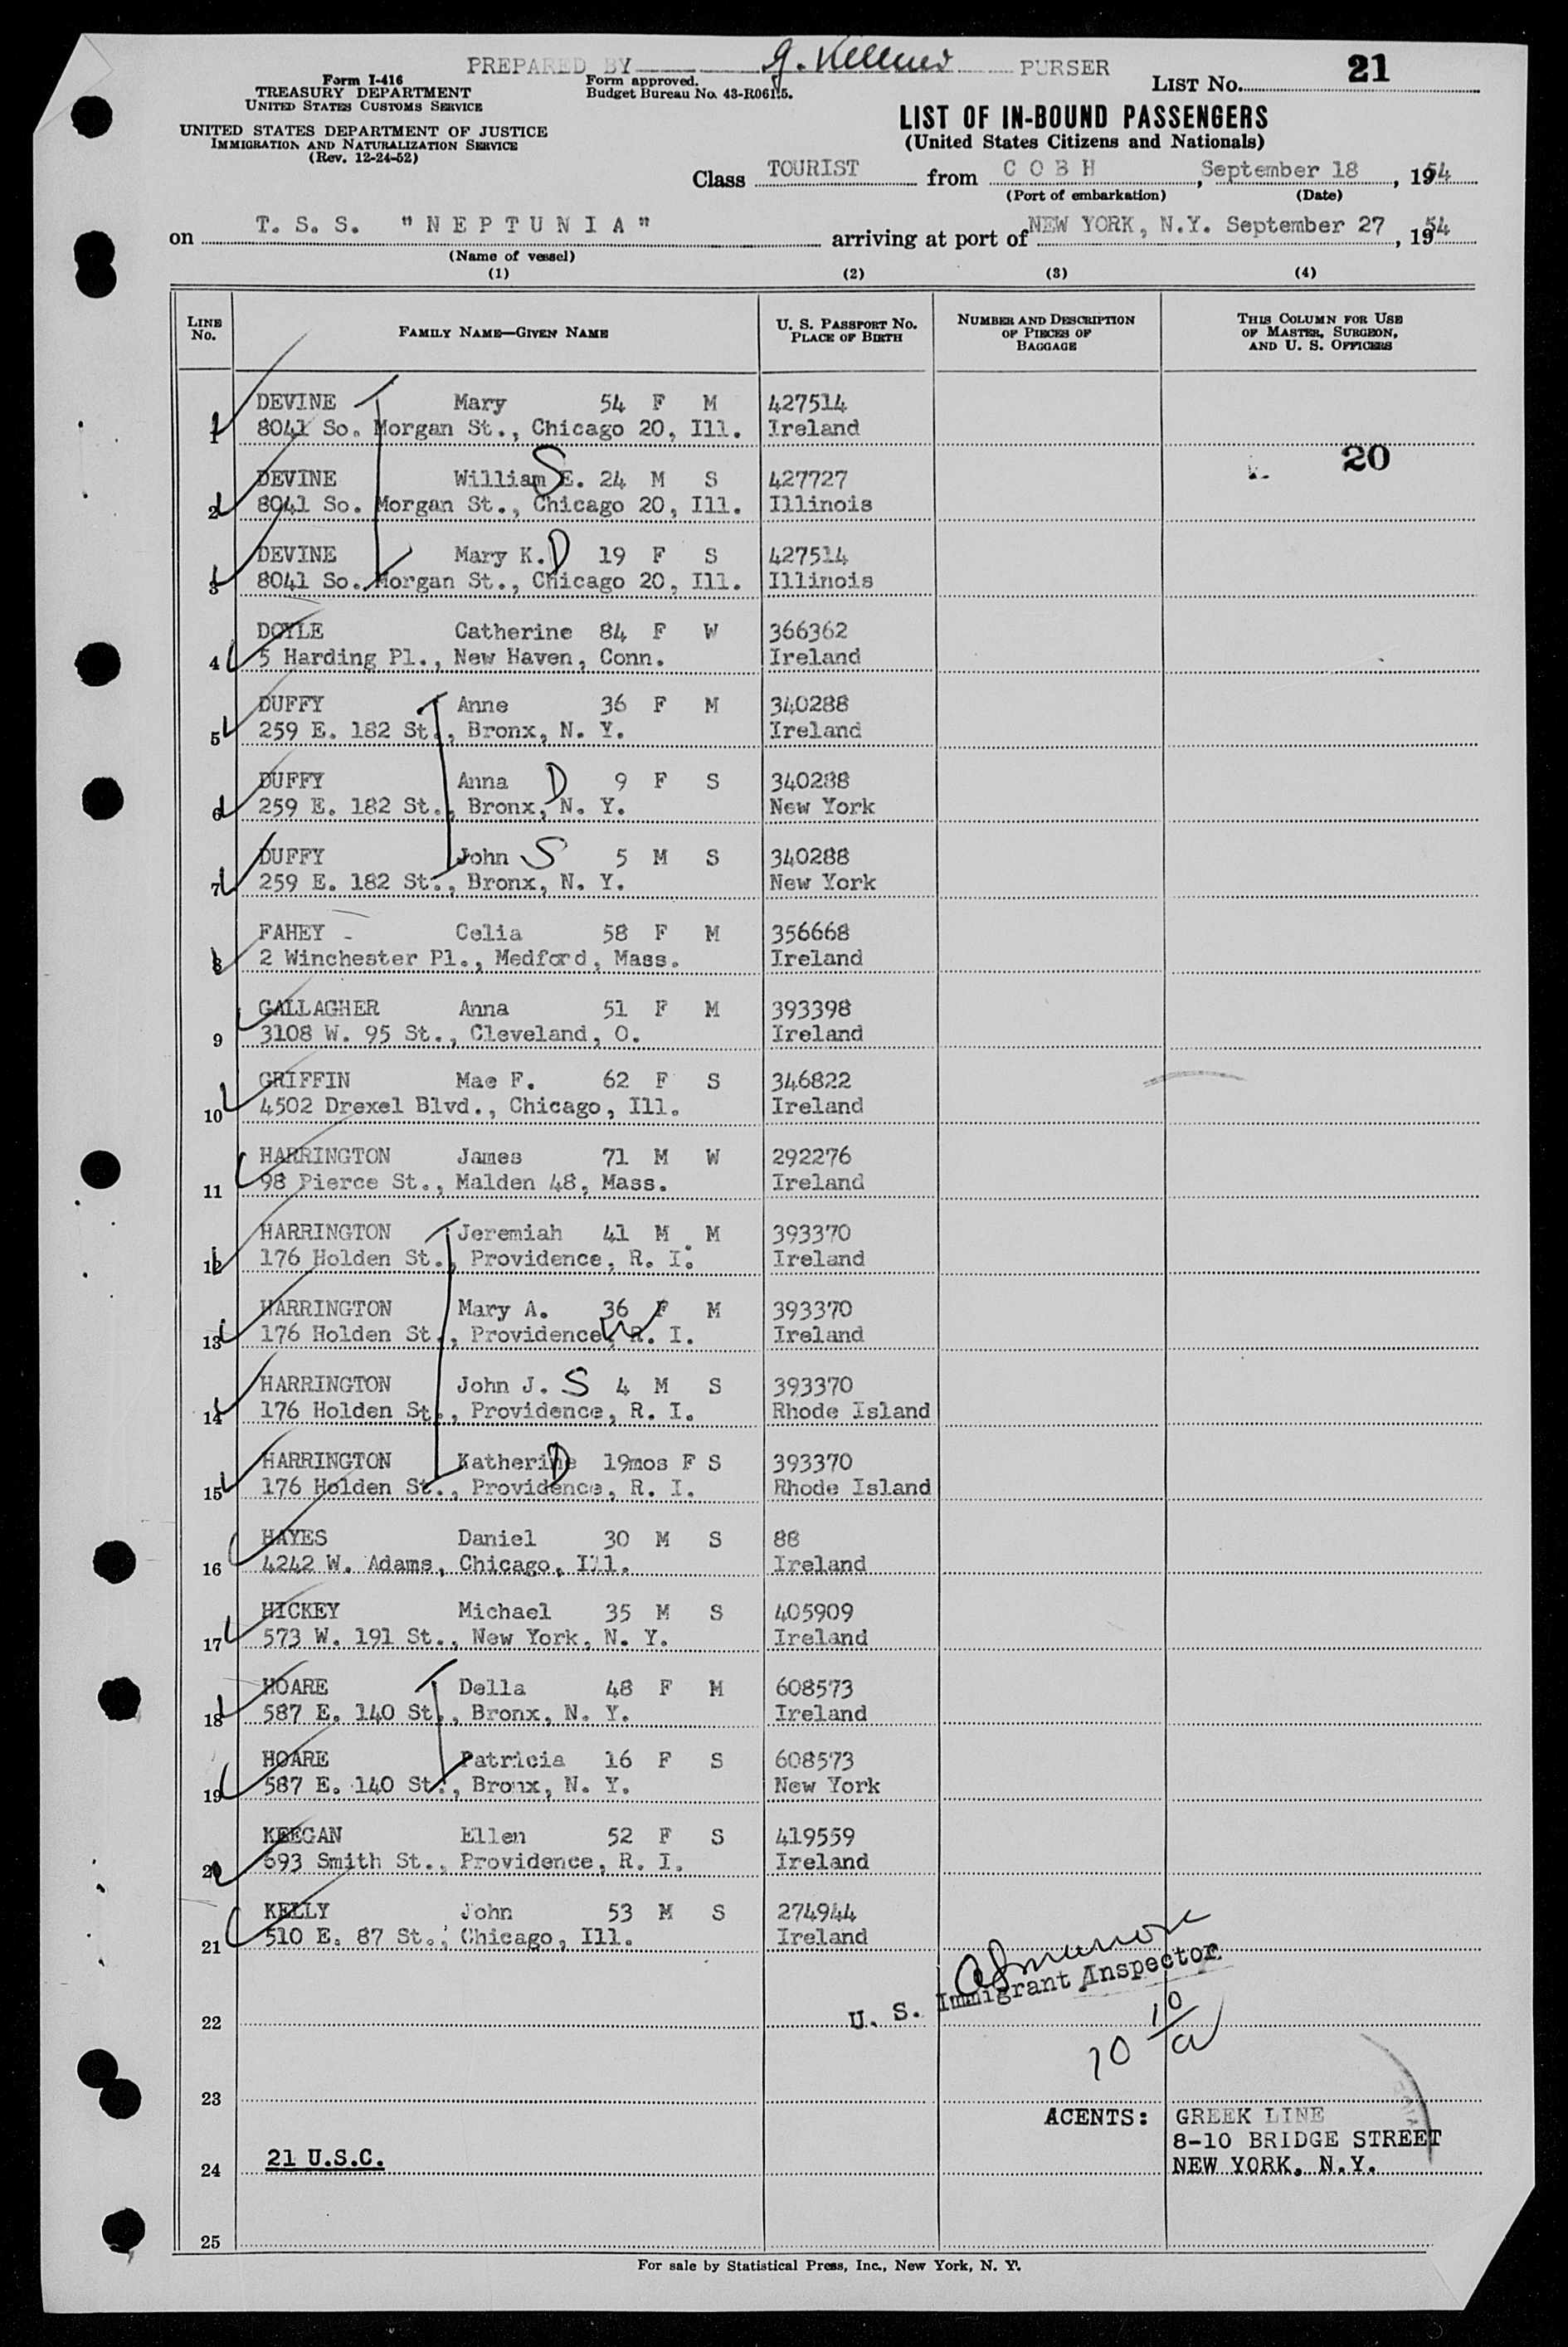 PREPARED BY G. Kellner PURSER
Form I-416
TREASURY DEPARTMENT
UNITED STATES CUSTOMS SERVICE
Form approved.
Budget Bureau No. 43-R061.5.
LIST No. 21
UNITED STATES DEPARTMENT OF JUSTICE
IMMIGRATION AND NATURALIZATION SERVICE
(Rev. 12-24-52)
LIST OF IN-BOUND PASSENGERS
(United States Citizens and Nationals)
Class TOURIST from C O B H, September 18, 1954
(Port of embarkation) (Date)
on T. S. S. "N E P T U N I A" arriving at port of NEW YORK, N.Y. September 27, 1954
(Name of vessel)
(1) (2) (3) (4)
LINE No. FAMILY NAME—GIVEN NAME U. S. PASSPORT NO. PLACE OF BIRTH NUMBER AND DESCRIPTION OF PIECES OF BAGGAGE THIS COLUMN FOR USE OF MASTER, SURGEON, AND U. S. OFFICERS
DEVINE Mary 54 F M 427514
1 8041 So. Morgan St., Chicago 20, Ill. Ireland
20
DEVINE William E. S 24 M S 427727
2 8041 So. Morgan St., Chicago 20, Ill. Illinois
DEVINE Mary K. D 19 F S 427514
3 8041 So. Morgan St., Chicago 20, Ill. Illinois
DOYLE Catherine 84 F W 366362
4 5 Harding Pl., New Haven, Conn. Ireland
DUFFY Anne 36 F M 340288
5 259 E. 182 St., Bronx, N. Y. Ireland
DUFFY Anna D 9 F S 340288
6 259 E. 182 St., Bronx, N. Y. New York
DUFFY John S 5 M S 340288
7 259 E. 182 St., Bronx, N. Y. New York
FAHEY - Celia 58 F M 356668
8 2 Winchester Pl., Medford, Mass. Ireland
GALLAGHER Anna 51 F M 393398
9 3108 W. 95 St., Cleveland, O. Ireland
GRIFFIN Mae F. 62 F S 346822
10 4502 Drexel Blvd., Chicago, Ill. Ireland
HARRINGTON James 71 M W 292276
11 98 Pierce St., Malden 48, Mass. Ireland
HARRINGTON Jeremiah 41 M M 393370
12 176 Holden St., Providence, R. I. Ireland
HARRINGTON Mary A. 36 F M 393370
13 176 Holden St., Providence, W R. I. Ireland
HARRINGTON John J. S 4 M S 393370
14 176 Holden St., Providence, R. I. Rhode Island
HARRINGTON Katherine D 19mos F S 393370
15 176 Holden St., Providence, R. I. Rhode Island
HAYES Daniel 30 M S 88
16 4242 W. Adams, Chicago, Ill. Ireland
HICKEY Michael 35 M S 405909
17 573 W. 191 St., New York, N. Y. Ireland
HOARE Della 48 F M 608573
18 587 E. 140 St., Bronx, N. Y. Ireland
HOARE Patricia 16 F S 608573
19 587 E. 140 St., Bronx, N. Y. New York
KEEGAN Ellen 52 F S 419559
20 693 Smith St., Providence, R. I. Ireland
KELLY John 53 M S 274944
21 510 E. 87 St., Chicago, Ill. Ireland
U. S. Immigrant Inspector
22
10 10/a
23
AGENTS: GREEK LINE
8-10 BRIDGE STREET
24 21 U.S.C. NEW YORK, N.Y.
25
For sale by Statistical Press, Inc., New York, N. Y.